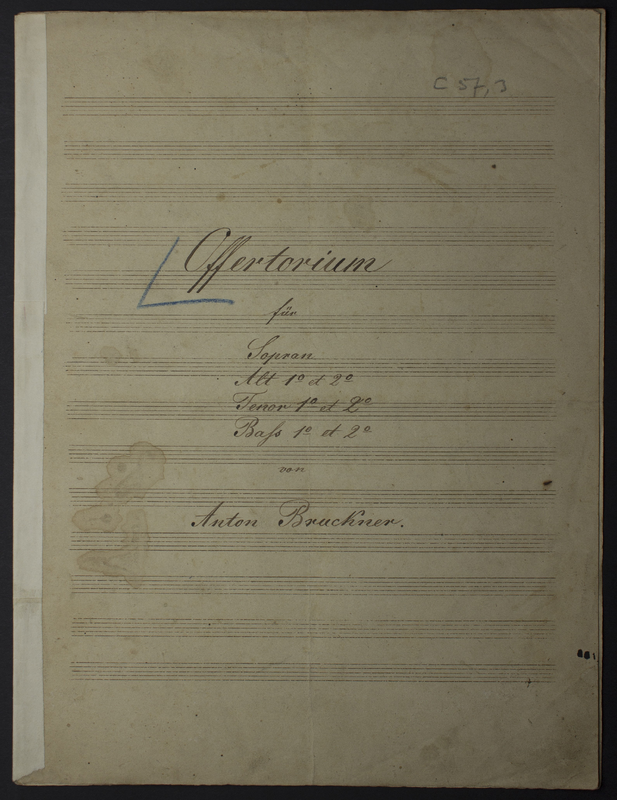 C 57,3
Offertorium
für
Sopran
Alt 1º et 2º
Tenor 1º et 2º
Baſs 1º et 2º
von
Anton Bruckner.